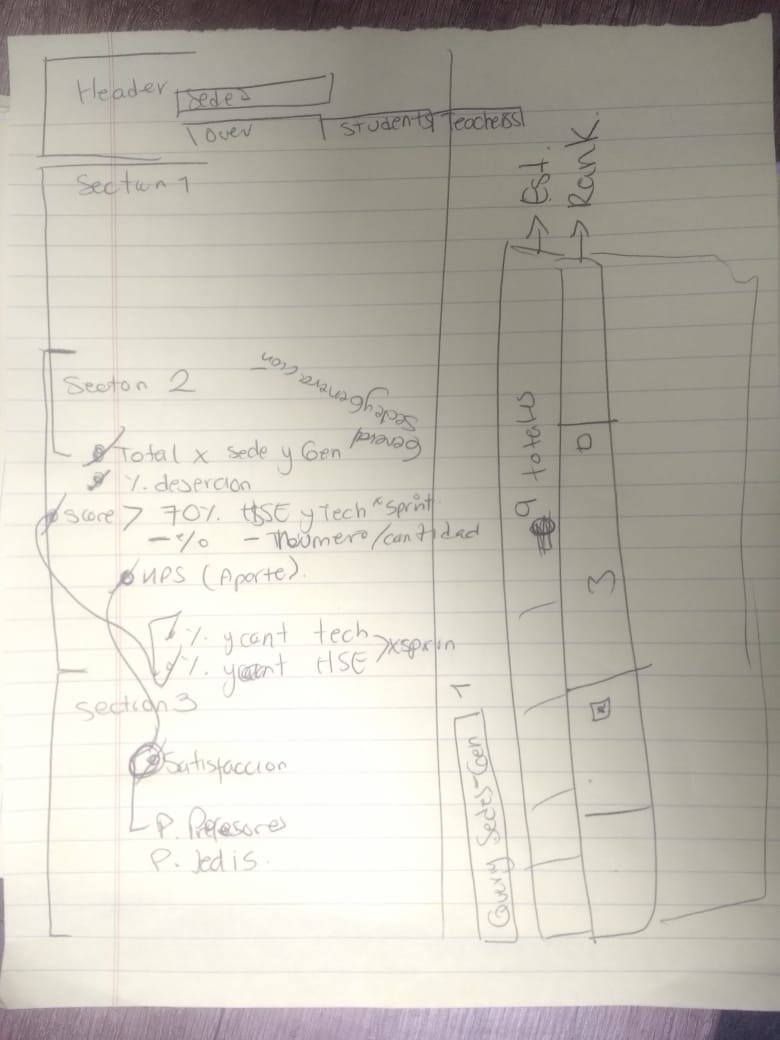 Header
Sedes
Over
Students
Teachers
Section 1
Secton 2
General
Sede y Generacion
Total x sede y Gen
% desercion
Score > 70% HSE y Tech * sprint
- % - Noumero/cantidad
NPS (Aporte).
% y cant tech
% y cant HSE
> x sprin
Section 3
Satisfaccion
P. Profesores
P. Jedis.
→ Est.
→ Rank.
9 totales
3
1
Query Sedes-Gen